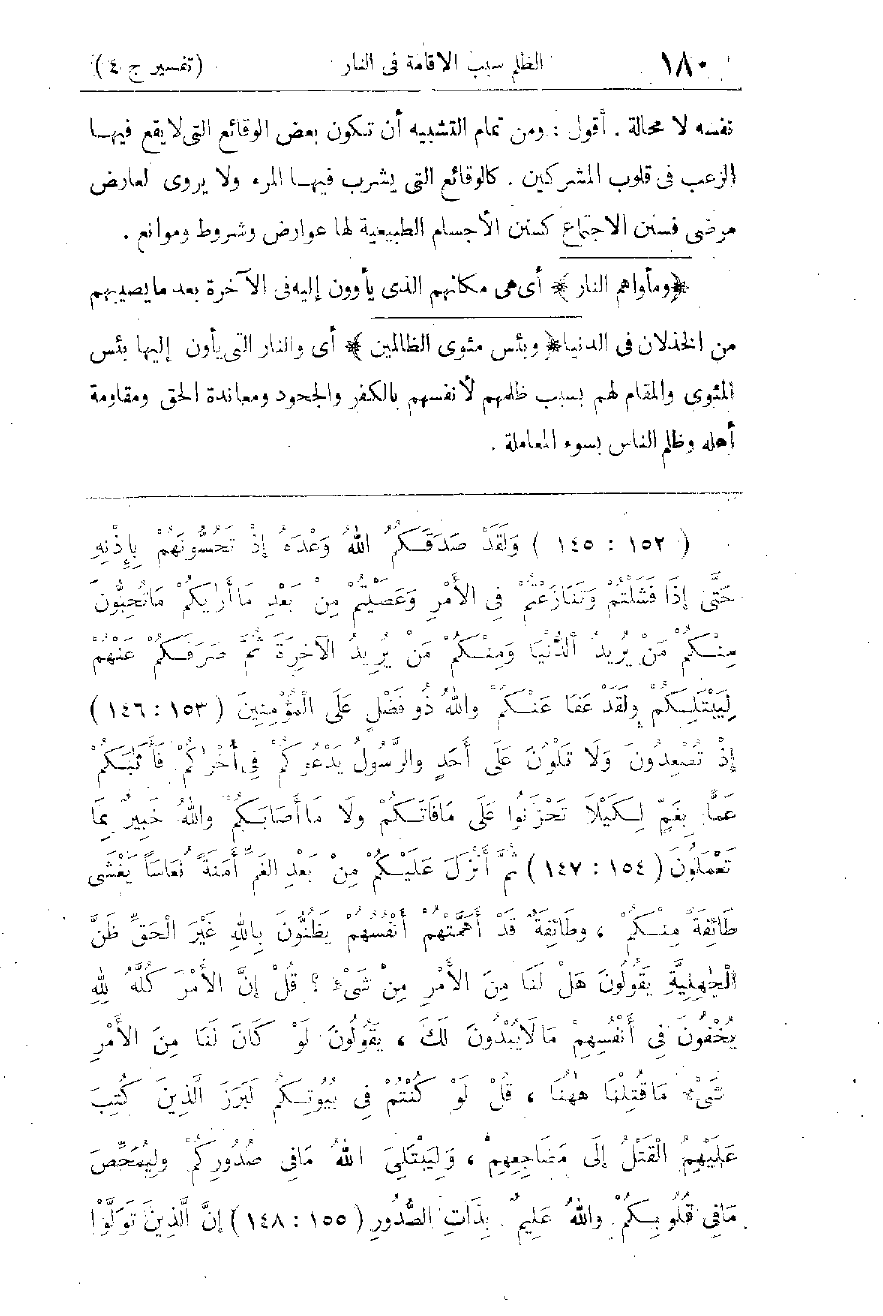 ١٨٠ الظلم سبب الاقامة فى النار (تفسير ج ٤)
نفسه لا محالة . أقول : ومن تمام التشبيه أن تكون بعض الوقائع التى لا يقع فيها
الرعب فى قلوب المشركين . كالوقائع التى يشرب فيها المرء ولا يروى لعارض
مرضى فسنن الاجتماع كسنن الأجسام الطبيعية لها عوارض وشروط وموانع .
﴿ ومأواهم النار ﴾ أى هى مكانهم الذى يأوون إليه فى الآخرة بعد ما يصيبهم
من الخذلان فى الدنيا ﴿ وبئس مثوى الظالمين ﴾ أى والنار التى يأون إليها بئس
المثوى والمقام لهم بسبب ظلمهم لأنفسهم بالكفر والجحود ومعاندة الحق ومقاومة
أهله وظلم الناس بسوء المعاملة .
(١٥٢ : ١٤٥) وَلَقَدْ صَدَقَكُمُ اللهُ وَعْدَهُ إِذْ تَحُسُّونَهُمْ بِإِذْنِهِ
حَتَّى إِذَا فَشَلْتُمْ وَتَنَازَعْتُمْ فِي الأَمْرِ وَعَصَيْتُمْ مِنْ بَعْدِ مَا أَرَايكُمْ مَا تُحِبُّونَ
مِنْكُمْ مَنْ يُرِيدُ الدُّنْيَا وَمِنْكُمْ مَنْ يُرِيدُ الآخِرَةَ ثُمَّ صَرَفَكُمْ عَنْهُمْ
لِيَبْتَلِيَكُمْ وَلَقَدْ عَفَا عَنْكُمْ وَاللهُ ذُو فَضْلٍ عَلَى الْمُؤْمِنِينَ (١٥٣ : ١٤٦)
إِذْ تُصْعِدُونَ وَلَا تَلْوُنَ عَلَى أَحَدٍ والرَّسُولُ يَدْعُوكُمْ فِي أُخْرَاكُمْ فَأَثَابَكُمْ
غَمًّا بِغَمٍّ لِكَيْلَا تَحْزَنُوا عَلَى مَا فَاتَكُمْ وَلَا مَا أَصَابَكُمْ وَاللهُ خَبِيرٌ بِمَا
تَعْمَلُونَ (١٥٤ : ١٤٧) ثُمَّ أَنْزَلَ عَلَيْكُمْ مِنْ بَعْدِ الغَمِّ أَمَنَةً نُعَاسًا يَغْشَى
طَائِفَةً مِنْكُمْ ، وَطَائِفَةٌ قَدْ أَهَمَّتْهُمْ أَنْفُسُهُمْ يَظُنُّونَ بِاللهِ غَيْرَ الْحَقِّ ظَنَّ
الْجَهِلِيَّةِ يَقُولُونَ هَلْ لَنَا مِنَ الأَمْرِ مِنْ شَيْءٍ ؟ قُلْ إِنَّ الأَمْرَ كُلَّهُ لِلهِ
يُخْفُونَ فِي أَنْفُسِهِمْ مَا لَا يُبْدُونَ لَكَ ، يَقُولُونَ لَوْ كَانَ لَنَا مِنَ الأَمْرِ
شَيْءٌ مَا قُتِلْنَا هَهُنَا ، قُلْ لَوْ كُنْتُمْ فِي بُيُوتِكُمْ لَبَرَزَ الَّذِينَ كُتِبَ
عَلَيْهِمُ الْقَتْلُ إِلَى مَضَاجِعِهِمْ ، وَلِيَبْتَلِيَ اللهُ مَا فِي صُدُورِكُمْ وَلِيُمَحِّصَ
مَا فِي قُلُوبِكُمْ وَاللهُ عَلِيمٌ بِذَاتِ الصُّدُورِ (١٥٥ : ١٤٨) إِنَّ الَّذِينَ تَوَلَّوْا